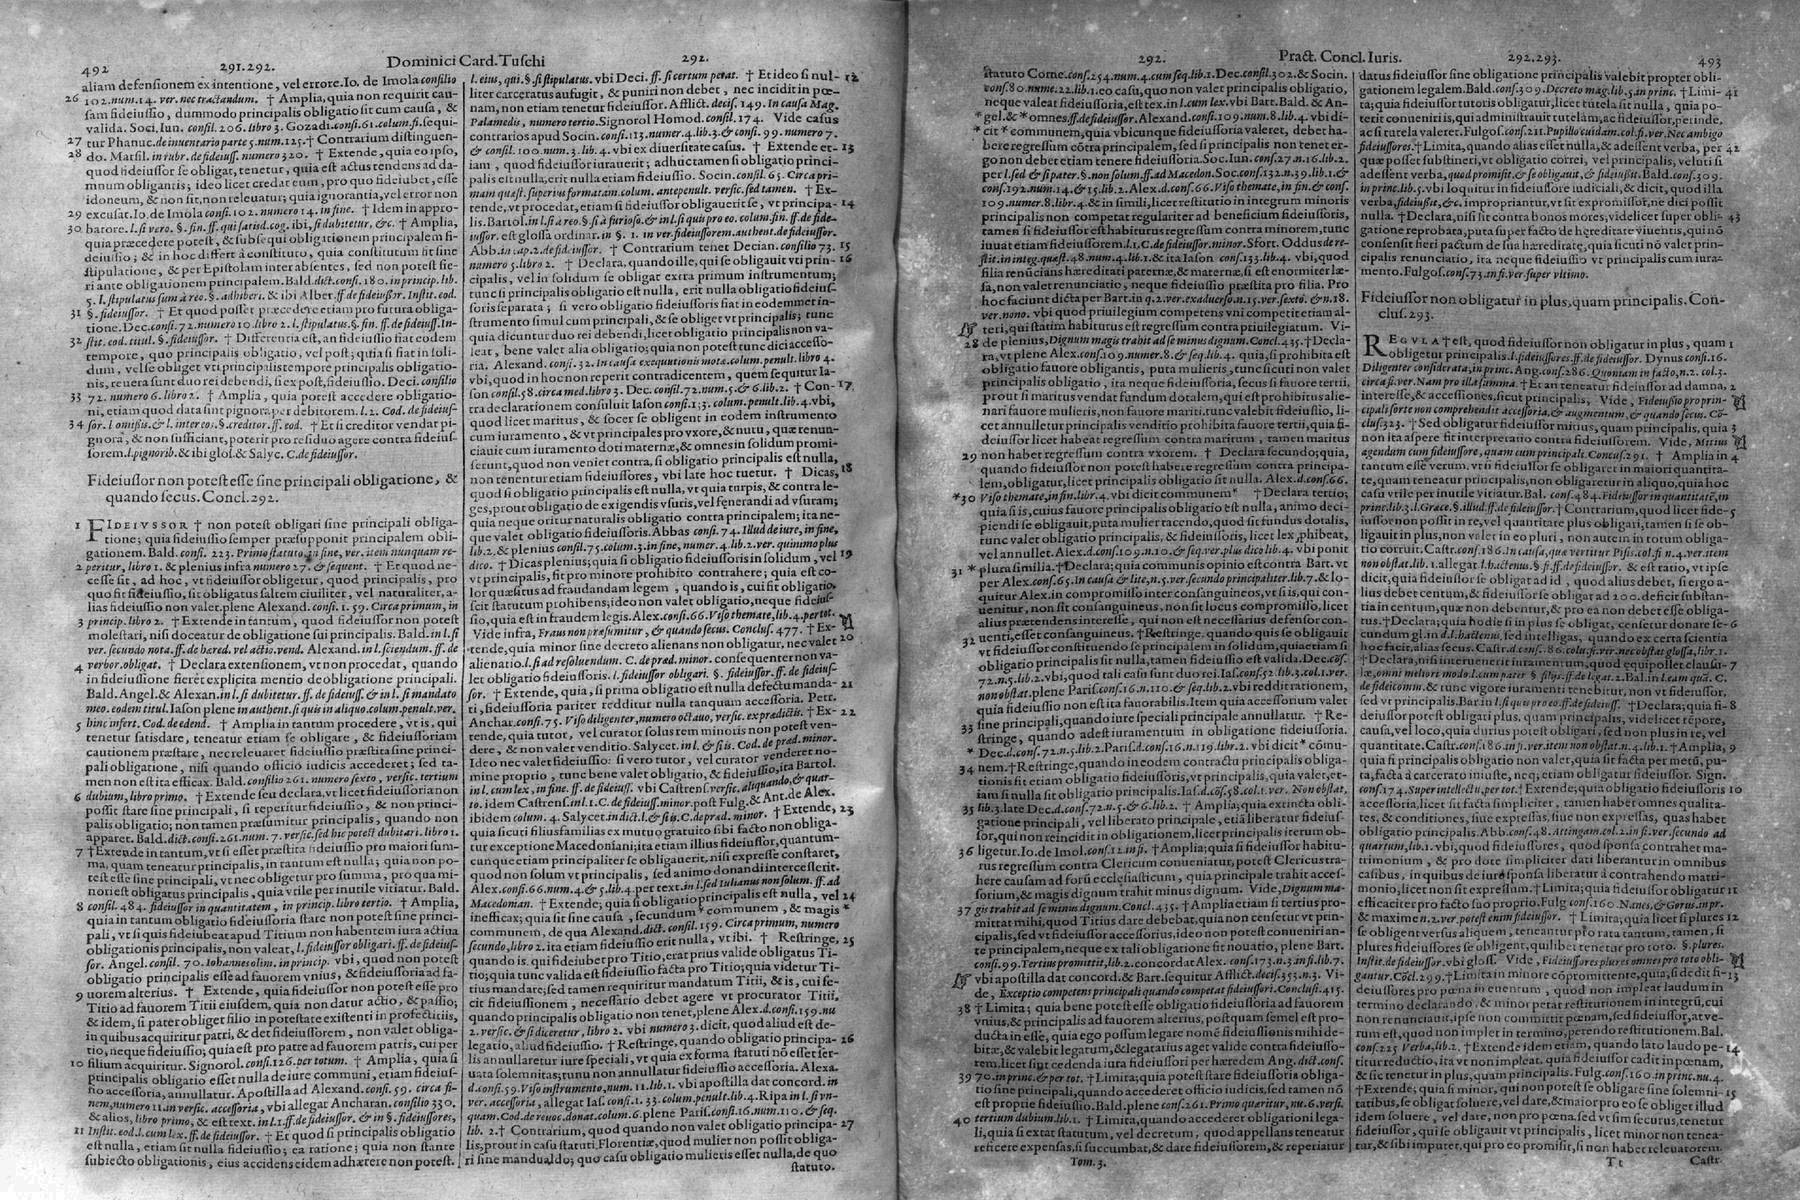 492 291.292. Dominici Card. Tuſchi 292.
aliam defenſionem ex intentione, vel errore. Io. de Imola conſilio
26 102.num.14. ver. nec tractandum. † Amplia, quia non requirit cau-
ſam fideiuſſio, dummodo principalis obligatio ſit cum cauſa, &
valida. Soci. Iun. conſil. 206. libro 3. Gozadi. conſi. 61. colum. fi. ſequi-
27 tur Phanuc. de inuentario parte 5. num. 125. † Contrarium diſtinguen-
28 do. Marſil. in rubr. de fideiuſſ. numero 320. † Extende, quia eo ipſo,
quod fideiuſſor ſe obligat, tenetur, quia eſt actus tendens ad da-
mnum obligantis; ideo licet credat eum, pro quo fideiubet, eſſe
idoneum, & non ſit, non releuatur; quia ignorantia, vel error non
29 excuſat. Io. de Imola conſi. 102. numero 14. in fine. † Idem in appro-
30 batore. l. ſi vero. §. fin. ff. qui ſatiſd. cog. ibi, ſi dubitetur, &c. † Amplia,
quia præcedere poteſt, & ſubſequi obligationem principalem fi-
deiuſſio; & in hoc differt à conſtituto, quia conſtitutum fit ſine
ſtipulatione, & per Epiſtolam inter abſentes, ſed non poteſt fie-
ri ante obligationem principalem. Bald. dict. conſ. 180. in princip. lib.
5. l. ſtipulatus ſum à reo. §. adhiberi. & ibi Alber. ff. de fideiuſſor. Inſtit. eod.
31 §. fideiuſſor. † Et quod poſſet præcedere etiam pro futura obliga-
tione. Dec. conſ. 72. numero 10. libro 2. l. ſtipulatus. §. fin. ff. de fideiuſſ. In-
32 ſtit. eod. titul. §. fideiuſſor. † Differentia eſt, an fideiuſſio fiat eodem
tempore, quo principalis obligatio, vel poſt; quia ſi fiat in ſoli-
dum, vel ſe obliget vti principalis tempore principalis obligatio-
nis, reuera ſunt duo rei debendi, ſi ex poſt, fideiuſſio. Deci. conſilio
33 72. numero 6. libro 2. † Amplia, quia poteſt accedere obligatio-
ni, etiam quod data ſint pignora per debitorem. l. 2. Cod. de fideiuſ-
34 ſor. l. omiſſis. & l. inter eos. §. creditor. ff. eod. † Et ſi creditor vendat pi-
gnora, & non ſufficiant, poterit pro reſiduo agere contra fideiuſ-
ſorem. l. pignorib. & ibi gloſ. & Salyc. C. de fideiuſſor.
Fideiuſſor non poteſt eſſe ſine principali obligatione, &
quando ſecus. Concl. 292.
1 FIDEIVSSOR † non poteſt obligari ſine principali obliga-
tione; quia fideiuſſio ſemper præſupponit principalem obli-
gationem. Bald. conſi. 223. Primo ſtatuto, in fine, ver. item nunquam re-
2 peritur, libro 1. & plenius infra numero 27. & ſequent. † Et quod ne-
ceſſe ſit, ad hoc, vt fideiuſſor obligetur, quod principalis, pro
quo fit fideiuſſio, ſit obligatus ſaltem ciuiliter, vel naturaliter, a-
lias fideiuſſio non valet. plene Alexand. conſi. 1. 59. Circa primum, in
3 princip. libro 2. † Extende in tantum, quod fideiuſſor non poteſt
moleſtari, niſi doceatur de obligatione ſui principalis. Bald. in l. ſi
ver. ſecundo nota. ff. de hæred. vel actio. vend. Alexand. in l. ſciendum. ff. de
4 verbor. obligat. † Declara extenſionem, vt non procedat, quando
in fideiuſſione fieret explicita mentio de obligatione principali.
Bald. Angel. & Alexan. in l. ſi dubitetur. ff. de fideiuſſ. & in l. ſi mandato
meo. eodem titul. Iaſon plene in authent. ſi quis in aliquo. col. penult. ver.
5 hinc infert. Cod. de edend. † Amplia in tantum procedere, vt is, qui
tenetur ſatiſdare, teneatur etiam ſe obligare, & fideiuſſoriam
cautionem præſtare, nec releuaret fideiuſſio præſtita ſine princi-
pali obligatione, niſi quando officio iudicis accederet; ſed ta-
men non eſt ita efficax. Bald. conſilio 261. numero ſexto, verſic. tertium
6 dubium, libro primo. † Extende ſeu declara, vt licet fideiuſſoria non
poſſit ſtare ſine principali, ſi reperitur fideiuſſio, & non princi-
palis obligatio; non tamen præſumitur principalis, quando non
apparet. Bald. dict. conſ. 261. num. 7. verſic. ſed hic poteſt dubitari. libro 1.
7 † Extende in tantum, vt ſi eſſet præſtita fideiuſſio pro maiori ſum-
ma, quam teneatur principalis, in tantum eſt nulla; quia non po-
teſt eſſe ſine principali, vt nec obligetur pro ſumma, pro qua mi-
nori eſt obligatus principalis, quia vtile per inutile vitiatur. Bald.
8 conſil. 484. fideiuſſor in quantitatem, in princip. libro tertio. † Amplia,
quia in tantum obligatio fideiuſſoria ſtare non poteſt ſine princi-
pali, vt ſi quis fideiubeat apud Titium non habentem iura actiua
obligationis principalis, non valeat, l. fideiuſſor obligari. ff. de fideiuſ-
ſor. Angel. conſil. 70. Iohannes olim. in princip. vbi, quod non poteſt
obligatio principalis eſſe ad fauorem vnius, & fideiuſſoria ad fa-
9 uorem alterius. † Extende, quia fideiuſſio non poteſt eſſe pro
Titio ad fauorem Titii eiuſdem, quia non datur actio, & paſſio;
& idem, ſi pater obliget filio in poteſtate exiſtenti in profectitiis,
in quibus acquiritur patri, & det fideiuſſorem, non valet obliga-
tio, neque fideiuſſio; quia eſt pro patre ad fauorem patris, cui per
10 filium acquiritur. Signorol. conſi. 126. per totum. † Amplia, quia ſi
principalis obligatio eſſet nulla de iure communi, etiam fideiuſ-
ſio acceſſoria, annullatur. Apoſtilla ad Alexand. conſi. 59. circa fi-
nem, numero 11. in verſic. acceſſoria, vbi allegat Ancharan. conſilio 330.
& alios, libro primo, & eſt text. in l. 1. ff. de fideiuſſor. & in §. fideiuſſores,
11 Inſtit. eod. l. cum lex. ff. de fideiuſſor. † Et quod ſi principalis obligatio
eſt nulla, etiam ſit nulla fideiuſſio; ea ratione; quia non ſtante
ſubiecto obligationis, eius accidens eidem adhærere non poteſt.
l. eius, qui. §. ſi ſtipulatus. vbi Deci. ff. ſi certum petat. † Et ideo ſi nul- 12
liter carceratus aufugit, & puniri non debet, nec incidit in pœ-
nam, non etiam tenetur fideiuſſor. Afflict. deciſ. 149. In cauſa Mag.
Palamedis, numero tertio. Signorol Homod. conſil. 174. Vide caſus
contrarios apud Socin. conſi. 113. numer. 4. lib. 3. & conſi. 99. numero 7.
& conſil. 100. num. 3. lib. 4. vbi ex diuerſitate caſus. † Extende et- 13
iam, quod fideiuſſor iurauerit; adhuc tamen ſi obligatio princi-
palis eſt nulla, erit nulla etiam fideiuſſio. Socin. conſil. 65. Circa pri-
mam quæſt. ſuperius formatam. colum. antepenult. verſic. ſed tamen. † Ex-
tende, vt procedat, etiam ſi fideiuſſor obligauerit ſe, vt principa- 14
lis. Bartol. in l. ſi à reo. §. ſi à furioſo. & in l. ſi quis pro eo. colum. fin. ff. de fide-
iuſſor. eſt gloſſa ordinar. in §. 1. in ver. fideiuſſorem. authent. de fideiuſſor.
Abb. in cap. 2. de fideiuſſor. † Contrarium tenet Decian. conſilio 73. 15
numero 5. libro 2. † Declara, quando ille, qui ſe obligauit vti prin- 16
cipalis, vel in ſolidum ſe obligat extra primum inſtrumentum;
tunc ſi principalis obligatio eſt nulla, erit nulla obligatio fideiuſ-
ſoris ſeparata; ſi vero obligatio fideiuſſoris fiat in eodemmet in-
ſtrumento ſimul cum principali, & ſe obliget vt principalis; tunc
quia dicuntur duo rei debendi, licet obligatio principalis non va-
leat, bene valet alia obligatio; quia non poteſt tunc dici acceſſo-
ria. Alexand. conſi. 32. In cauſa exequutionis motæ. colum. penult. libro 4.
vbi, quod in hoc non reperit contradicentem, quem ſequitur Ia-
ſon conſil. 58. circa med. libro 3. Dec. conſil. 72. num. 5. & 6. lib. 2. † Con- 17
tra declarationem conſuluit Iaſon conſi. 1; 3. colum. penult. libro 4. vbi,
quod licet maritus, & ſocer ſe obligent in eodem inſtrumento
cum iuramento, & vt principales pro vxore, & nutu, quæ renun-
ciauit cum iuramento doti maternæ, & omnes in ſolidum promi-
ſerunt, quod non veniet contra, ſi obligatio principalis eſt nulla,
non tenentur etiam fideiuſſores, vbi late hoc tuetur. † Dicas, 18
quod ſi obligatio principalis eſt nulla, vt quia turpis, & contra le-
ges, prout obligatio de exigendis vſuris, vel fœnerandi ad vſuram;
quia neque oritur naturalis obligatio contra principalem; ita ne-
que valet obligatio fideiuſſoris. Abbas conſi. 74. Illud de iure, in fine,
lib. 2. & plenius conſil. 75. colum. 3. in fine, numer. 4. lib. 2. ver. quinimo plus
dico. † Dicas plenius; quia ſi obligatio fideiuſſoris in ſolidum, vel 19
vt principalis, fit pro minore prohibito contrahere; quia eſt co-
lor quæſitus ad fraudandam legem, quando is, cui fit obligatio
ſcit ſtatutum prohibens; ideo non valet obligatio, neque fideiuſ-
ſio, quia eſt in fraudem legis. Alex. conſi. 66. Viſo themate, lib. 4. per tot.
Vide infra, Fraus non præſumitur, & quando ſecus. Concluſ. 477. † Ex-
tende, quia minor ſine decreto alienans non obligatur, nec valet 20
alienatio. l. ſi ad reſoluendum. C. de præd. minor. conſequenter non va-
let obligatio fideiuſſoris. l. fideiuſſor obligari. §. fideiuſſor. ff. de fideiuſ-
ſor. † Extende, quia, ſi prima obligatio eſt nulla defectu manda- 21
ti, fideiuſſoris pariter redditur nulla tanquam acceſſoria. Petr.
Anchar. conſi. 75. Viſo diligenter, numero octauo, verſic. ex prædictis. † Ex- 22
tende, quia tutor, vel curator ſolus rem minoris non poteſt ven-
dere, & non valet venditio. Salycet. in l. & ſi is. Cod. de præd. minor.
Ideo nec valet fideiuſſio: ſi vero tutor, vel curator venderet no-
mine proprio, tunc bene valet obligatio, & fideiuſſio, ita Bartol.
in l. cum lex, in fine. ff. de fideiuſſ. vbi Caſtren. verſic. aliquando, & quar-
to. idem Caſtrenſ. in l. 1. C. de fideiuſſ. minor. poſt Fulg. & Ant. de Alex.
ibidem colum. 4. Salycet. in dict. l. & ſi is. C. de præd. minor. † Extende, 23
quia ſicuti filiusfamilias ex mutuo gratuito ſibi facto non obliga-
tur exceptione Macedoniani; ita etiam illius fideiuſſor, quantum-
cunque etiam principaliter ſe obligauerit, niſi expreſſe conſtaret,
quod non ſolum vt principalis, ſed animo donandi interceſſerit.
Alex. conſi. 66. num. 4. & 5. lib. 4. per text. in l. ſed Iulianus non ſolum. ff. ad
Macedonian. † Extende; quia ſi obligatio principalis eſt nulla, vel 24
inefficax; quia ſit ſine cauſa, ſecundum * communem, & magis *
communem, de qua Alexand. dict. conſil. 159. Circa primum, numero
ſecundo, libro 2. ita etiam fideiuſſio erit nulla, vt ibi. † Reſtringe, 25
quando is. qui fideiubet pro Titio, erat prius valide obligatus Ti-
tio; quia tunc valida eſt fideiuſſio facta pro Titio; quia videtur Ti-
tius mandare; ſed tamen requiritur mandatum Titii, & is, cui fe-
cit fideiuſſionem, neceſſario debet agere vt procurator Titii,
quando principalis obligatio non tenet, plene Alex. d. conſi. 159. nu
2. verſic. & ſi diceretur, libro 2. vbi numero 3. dicit, quod aliud eſt de-
legatio, aliud fideiuſſio. † Reſtringe, quando obligatio principa- 26
lis annullaretur iure ſpeciali, vt quia ex forma ſtatuti nō eſſet ſer-
uata ſolemnitas; tunu non annullatur fideiuſſio acceſſoria. Alexa.
d. conſi. 59. Viſo inſtrumento, num. 11. lib. 1. vbi apoſtilla dat concord. in
ver. acceſſoria, allegat Iaſ. conſi. 1. 33. colum. penult. lib. 4. Ripa in l. ſi vn-
quam. Cod. de reuoc. donat. colum. 6. plene Pariſ. conſi. 16. num. 110. & ſeq.
lib. 2. † Contrarium, quod quando non valet obligatio principa- 27
lis, prout in caſu ſtatuti Florentiæ, quod mulier non poſſit obliga-
ri ſine mandualdo; quo caſu obligatio mulieris eſſet nulla, de quo
ſtatuto.
292. Pract. Concl. Iuris. 292.293. 493
ſtatuto Come. conſ. 254. num. 4. cum ſeq. lib. 1. Dec. conſil. 302. & Socin.
conſ. 80. nume. 22. lib. 1. eo caſu, quo non valet principalis obligatio,
neque valeat fideiuſſoria, eſt tex. in l. cum lex. vbi Bart. Bald. & An-
* gel. & * omnes. ff. de fideiuſſ. Alexand. conſi. 109. num. 8. lib. 4. vbi di-
* cit * communem, quia vbicunque fideiuſſoria valeret, debet ha-
bere regreſſum cōtra principalem, ſed ſi principalis non tenet er-
go non debet etiam tenere fideiuſſoria. Soc. Iun. conſ. 27. n. 16. lib. 2.
per l. ſed & ſi pater. §. non ſolum. ff. ad Macedon. Soc. conſ. 132. n. 39. lib. 1. &
conſ. 192. num. 14. & 15. lib. 2. Alex. d. conſ. 66. Viſo themate, in fin. & conſ.
109. numer. 8. libr. 4. & in ſimili, licet reſtitutio in integrum minoris
principalis non competat regulariter ad beneficium fideiuſſoris,
tamen ſi fideiuſſor non haberet regreſſum contra minorem, tunc
iuuat etiam fideiuſſorem. l. 1. C. de fideiuſſor. minor. Sfort. Oddus de re-
ſtit. in integ. quæſt. 48. num. 4. lib. 1. & ita Iaſon conſ. 133. lib. 4. vbi, quod
filia renūcians hæreditati paternæ, & maternæ, ſi eſt enormiter læ-
ſa, non valet renunciatio, neque fideiuſſio præſtita pro filia. Pro
hoc faciunt dicta per Bart. in q. 2. ver. ex aduerſo. n. 15. ver. ſexto. & n. 18.
ver. nono. vbi quod priuilegium competens vni competit etiam al-
teri, qui ſtatim habiturus eſt regreſſum contra priuilegiatum. Vi-
28 de plenius, Dignum magis trahit ad ſe minus dignum. Concl. 435. † Decla-
ra, vt plene Alex. conſi. 109. numer. 8. & ſeq. lib. 4. quia, ſi prohibita eſt
obligatio fauore obligantis, puta mulieris, tunc ſicuti non valet
principalis obligatio, ita neque fideiuſſoria, ſecus ſi fauore tertii,
prout ſi maritus vendat fundum dotalem, qui eſt prohibitus alie-
nari fauore mulieris, non fauore mariti. tunc valebit fideiuſſio, li-
cet annulletur principalis venditio prohibita fauore tertii, quia fi-
deiuſſor licet habeat regreſſum contra maritum, tamen maritus
29 non habet regreſſum contra vxorem. † Declara ſecundo; quia,
quando fideiuſſor non poteſt habere regreſſum contra principa-
lem, obligatur, licet principalis obligatio ſit nulla. Alex. d. conſ. 66.
*30 Viſo themate, in fin. libr. 4. vbi dicit communem* † Declara tertio;
quia ſi is, cuius fauore principalis obligatio eſt nulla, animo deci-
piendi ſe obligauit, puta mulier tacendo, quod ſit fundus dotalis,
tunc valet obligatio principalis, & fideiuſſoris, licet lex ꝓhibeat,
vel annullet. Alex. d. conſ. 109. n. 10. & ſeq. ver. plus dico lib. 4. vbi ponit
31 * plura ſimilia. † Declara; quia communis opinio eſt contra Bart. vt
per Alex. conſ. 65. In cauſa & lite, n. 5. ver. ſecundo principaliter. lib. 7. & lo-
quitur Alex. in compromiſſo inter conſanguineos, vt ſi is, qui con-
uenitur, non ſit conſanguineus, non ſit locus compromiſſo, licet
alius prætendens intereſſe, qui non eſt neceſſarius defenſor con-
32 uenti, eſſet conſanguineus. † Reſtringe, quando quis ſe obligauit
vt fideiuſſor conſtituendo ſe principalem in ſolidum, quia etiam ſi
obligatio principalis ſit nulla, tamen fideiuſſio eſt valida. Dec. cōſ.
72. n. 5. lib. 2. vbi, quod tali caſu ſunt duo rei. Iaſ. conſ. 52. lib. 3. col. 1. ver.
non obſtat. plene Pariſ. conſ. 16. n. 110. & ſeq. lib. 2. vbi reddit rationem,
quia fideiuſſio non eſt ita fauorabilis. Item quia acceſſorium valet
33 ſine principali, quando iure ſpeciali principale annullatur. † Re-
ſtringe, quando adeſt iuramentum in obligatione fideiuſſoria.
* Dec. d. conſ. 72. n. 5. lib. 2. Pariſ. d. conſ. 16. n. 119. libr. 2. vbi dicit * cōmu-
34 nem. † Reſtringe, quando in eodem contractu principalis obliga-
tionis fit etiam obligatio fideiuſſoris, vt principalis, quia valet, et-
iam ſi nulla ſit obligatio principalis. Iaſ. d. cōſ. 58. col. 1. ver. Non obſtat.
35 lib. 3. late Dec. d. conſ. 72. n. 5. & 6. lib. 2. † Amplia; quia extincta obli-
gatione principali, vel liberato principale, etiā liberatur fideiuſ-
ſor, qui non reincidit in obligationem, licet principalis iterum ob-
36 ligetur. Io. de Imol. conſ. 12. in fi. † Amplia; quia ſi fideiuſſor habitu-
rus regreſſum contra Clericum conueniatur, poteſt Clericus tra-
here cauſam ad forū eccleſiaſticum, quia principale trahit acceſ-
ſorium, & magis dignum trahit minus dignum. Vide, Dignum ma-
37 gis trahit ad ſe minus dignum. Concl. 435. † Amplia etiam ſi tertius pro-
mittat mihi, quod Titius dare debebat. quia non cenſetur vt prin-
cipalis, ſed vt fideiuſſor acceſſorius, ideo non poteſt conueniri an-
te principalem, neque ex tali obligatione fit nouatio, plene Bart.
conſi. 99. Tertius promittit, lib. 2. concordat Alex. conſ. 173. n. 3. in fi. lib. 7.
vbi apoſtilla dat concord. & Bart. ſequitur Afflict. deciſ. 353. n. 3. Vi-
de, Exceptio competens principali quando competat fideiuſſori. Concluſi. 415.
38 † Limita; quia bene poteſt eſſe obligatio fideiuſſoria ad fauorem
vnius, & principalis ad fauorem alterius, poſtquam ſemel eſt pro-
ducta in eſſe, quia ego poſſum legare nomē fideiuſſionis mihi de-
bitæ, & valebit legatum, & legatarius aget valide contra fideiuſſo-
rem, licet ſigt cedenda iura fideiuſſori per hæredem Ang. dict. conſ.
39 70. in princ. & per tot. † Limita; quia poteſt ſtare fideiuſſoria obliga-
tio ſine principali, quando accederet officio iudicis, ſed tamen nō
eſt proprie fideiuſſio. Bald. plene conſ. 261. Primo quæritur, nu. 6. verſi.
40 tertium dubium lib. 1. † Limita, quando accederet obligationi lega-
li, quia ſi extat ſtatutum, vel decretum, quod appellans teneatur
reficere expenſas, ſi ſuccumbat, & dare fideiuſſorem, & reperiatur
Tom. 3.
datus fideiuſſor ſine obligatione principalis valebit propter obli-
gationem legalem. Bald. conſ. 309. Decreto mag. lib. 5. in princ. † Limi- 41
ta; quia fideiuſſor tutoris obligatur, licet tutela ſit nulla, quia po-
terit conueniri is, qui adminiſtrauit tutelam, ac fideiuſſor, perinde,
ac ſi tutela valeret. Fulgoſ. conſ. 211. Pupillo cuidam. col. fi. ver. Nec ambigo
fideiuſſores. † Limita, quando alias eſſet nulla, & adeſſent verba, per 42
quæ poſſet ſubſtineri, vt obligatio correi, vel principalis, veluti ſi
adeſſent verba, quod promiſit, & ſe obligauit, & fideiuſſit. Bald. conſ. 309.
in princ. lib. 5. vbi loquitur in fideiuſſore iudiciali, & dicit, quod illa
verba, fideiuſſit, &c. impropriantur, vt ſit expromiſſor, ne dici poſſit
nulla. † Declara, niſi ſit contra bonos mores; videlicet ſuper obli- 43
gatione reprobata, puta ſuper facto de hæreditate viuentis, qui nō
conſenſit fieri pactum de ſua hæreditate, quia ſicuti nō valet prin-
cipalis renunciatio, ita neque fideiuſſio vt principalis cum iura-
mento. Fulgoſ. conſ. 73. in fi. ver. ſuper vltimo.
Fideiuſſor non obligatur in plus, quam principalis. Con-
cluſ. 293.
REGVLA † eſt, quod fideiuſſor non obligatur in plus, quam 1
obligetur principalis. l. fideiuſſores. ff. de fideiuſſor. Dynus conſi. 16.
Diligenter conſiderata, in princ. Ang. conſ. 286. Quoniam in facto, n. 2. col. 3.
circa fi. ver. Nam pro illa ſumma. † Et an teneatur fideiuſſor ad damna, 2
intereſſe, & acceſſiones, ſicut principalis, Vide, Fideiuſſio pro prin-
cipali ſorte non comprehendit acceſſoria, & augmentum, & quando ſecus. Cō-
cluſ. 323. † Sed obligatur fideiuſſor mitius, quam principalis, quia 3
non ita aſpere fit interpretatio contra fideiuſſorem. Vide, Mitius
agendum cum fideiuſſore, quam cum principali. Concuſ. 291. † Amplia in 4
tantum eſſe verum, vt ſi fideiuſſor ſe obligaret in maiori quantita-
te, quam teneatur principalis, non obligaretur in aliquo, quia hoc
caſu vtile per inutile vitiatur. Bal. conſ. 484. Fideiuſſor in quantitatē, in
princ. lib. 3. l. Græce. §. illud. ff. de fideiuſſor. † Contrarium, quod licet fide- 5
iuſſor non poſſit in re, vel quantitate plus obligari, tamen ſi ſe ob-
ligauit in plus, non valet in eo pluri, non autem in totum obliga-
tio corruit. Caſtr. conſ. 186. In cauſa, quæ vertitur Piſis. col. fi. n. 4. ver. item
non obſtat. lib. 1. allegat l. hactenus. §. fi. ff. de fideiuſſor. & eſt ratio, vt ipſe
dicit, quia fideiuſſor ſe obligat ad id, quod alius debet, ſi ergo a-
lius debet centum, & fideiuſſor ſe obligat ad 200. deficit ſubſtan-
tia in centum, quæ non debentur, & pro ea non debet eſſe obliga-
tus. † Declara; quia hodie ſi in plus ſe obligat, cenſetur donare ſe- 6
cundum gl. in d. l. hactenus, ſed intelligas, quando ex certa ſcientia
hoc facit, alias ſecus. Caſtr. d. conſ. 86. colu. fi. ver. nec obſtat gloſſa, libr. 1.
† Declara, niſi interuenerit iuramentum, quod equipollet clauſu- 7
læ, omni meliori modo. l. cum pater §. filiis. ff. de legat. 2. Bal. in l. eam quā. C.
de fideicomm. & tunc vigore iuramenti tenebitur, non vt fideiuſſor,
ſed vt principalis. Bar. in l. ſi quis pro eo. ff. de fideiuſſ. † Declara; quia fi- 8
deiuſſor poteſt obligari plus, quam principalis, videlicet tēpore,
cauſa, vel loco, quia durius poteſt obligari, ſed non plus in re, vel
quantitate. Caſtr. conſ. 186. in fi. ver. item non obſtat. n. 4. lib. 1. † Amplia, 9
quia ſi principalis obligatio non valet, quia ſit facta per metū, pu-
ta, facta à carcerato iniuſte, neq; etiam obligatur fideiuſſor. Sign.
conſ. 174. Super intellectu, per tot. † Extende; quia obligatio fideiuſſoris 10
acceſſoria, licet ſit facta ſimpliciter, tamen habet omnes qualita-
tes, & conditiones, ſiue expreſſas, ſiue non expreſſas, quas habet
obligatio principalis. Abb. conſ. 48. Attingam. col. 2. in fi. ver. ſecundo ad
quartum, lib. 1. vbi, quod fideiuſſor, quod ſponſa contrahet ma-
trimonium, & pro dote ſimpliciter dati liberantur in omnibus
caſibus, in quibus de iure ſponſa liberatur à contrahendo matri-
monio, licet non ſit expreſſum. † Limita; quia fideiuſſor obligatur 11
efficaciter pro facto ſuo proprio. Fulg conſ. 160. Nanes, & Gorus. in pr.
& maxime n. 2. ver. poteſt enim fideiuſſor. † Limita, quia licet ſi plures 12
ſe obligent verſus aliquem, teneantur pro rata tantum, tamen, ſi
plures fideiuſſores ſe obligent, quilibet tenetur pro toto. §. plures.
Inſtit. de fideiuſſor. vbi gloſſ. Vide, Fideiuſſores plures omnes pro toto obli-
gantur. Cōcl. 299. † Limita in minore cōpromittente, quia; ſi dedit fi- 13
deiuſſores pro pœna in euentum, quod non impleat laudum in
termino declarando. & minor petat reſtitutionem in integrū, cui
non renunciauit, ipſe non committit pœnam, ſed fideiuſſor, at ve-
rum eſt, quod non implet in termino, petendo reſtitutionem. Bal.
conſ. 225 Verba, lib. 2. † Extende idem etiam, quando lato laudo pe- 14
titur reductio, ita vt non impleat. quia fideiuſſor cadit in pœnam,
& ſic tenetur in plus, quam principalis. Fulg. conſ. 160 in princ. nu. 4.
† Extende; quia ſi minor, qui non poteſt ſe obligare ſine ſolemni- 15
tatibus, ſe obligat ſoluere, vel dare, & maior pro eo ſe obliget illud
idem ſoluere, vel dare, non pro pœna. ſed vt ſim ſecurus, tenetur
fideiuſſor, qui ſe obligauit vt principalis, licet minor non tenea-
tur, & ſibi imputet, qui pro eo promiſit, ſi non habet releuatorem.
T t Caſtr.